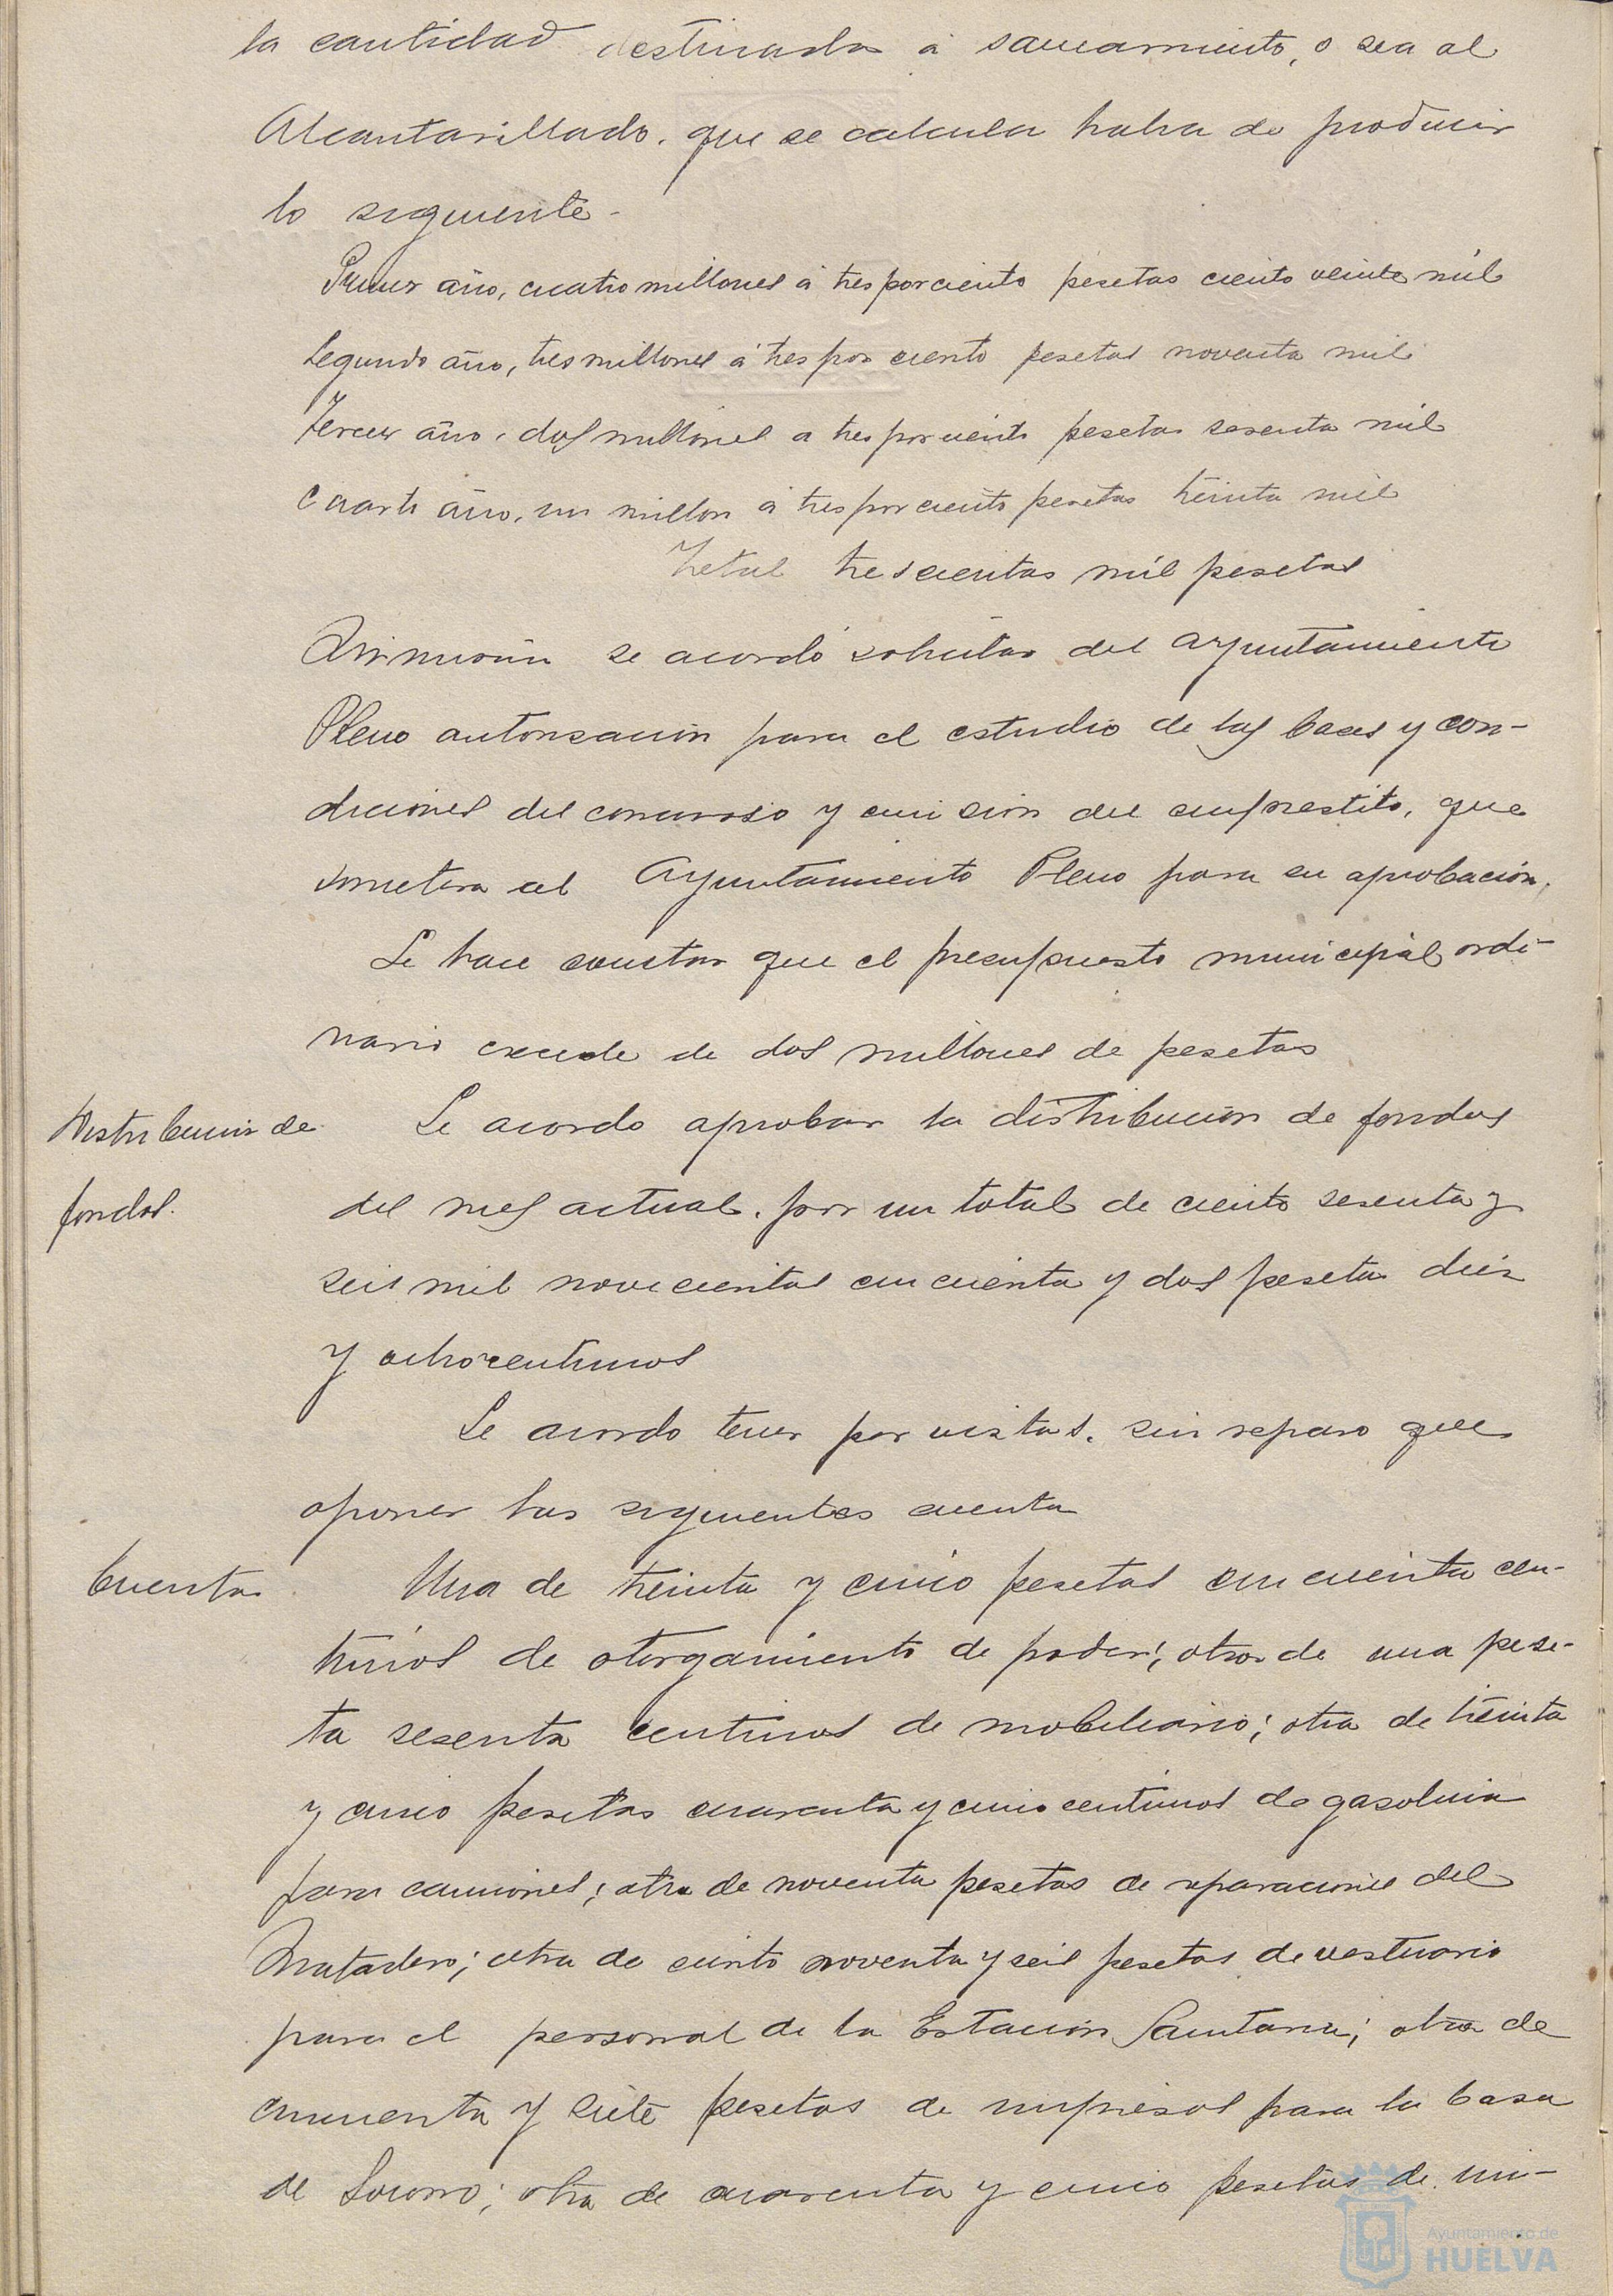 la cantidad destinada a saneamiento, o sea al
Alcantarillado, que se calcula habra de producir
lo siguiente.
Primer año, cuatro millones á tres por ciento pesetas ciento veinte mil
Segundo año, tres millones á tres por ciento pesetas noventa mil
Tercer año, dos millones a tres por ciento pesetas sesenta mil
Cuarto año, un millon á tres por ciento pesetas treinta mil
Total trescientas mil pesetas
Asimismo se acordó solicitar del Ayuntamiento
Pleno autorización para el estudio de las bases y con-
diciones del concurso y emisión del emprestito, que
sometera al Ayuntamiento Pleno para su aprobación.
Se hace constar que el presupuesto municipal ordi-
nario excede de dos millones de pesetas
Distribucion de
fondos.
Se acordo aprobar la distribución de fondos
del mes actual, por un total de ciento sesenta y
seis mil novecientas cincuenta y dos pesetas diez
y ocho centimos
Se acordo tener por vistas, sin reparo que
oponer las siguientes cuenta
Cuentas
Una de treinta y cinco pesetas cincuenta cen-
timos de otorgamiento de poder; otra de una pese-
ta sesenta centimos de mobiliario; otra de treinta
y cinco pesetas cuarenta y cinco centimos de gasolina
para camiones; otra de noventa pesetas de reparaciones del
Matadero; otra de ciento noventa y seis pesetas de vestuario
para el personal de la Estación Sanitaria; otra de
cincuenta y siete pesetas de impresos para la Casa
de Socorro; otra de cuarenta y cinco pesetas de im-
Ayuntamiento de
HUELVA